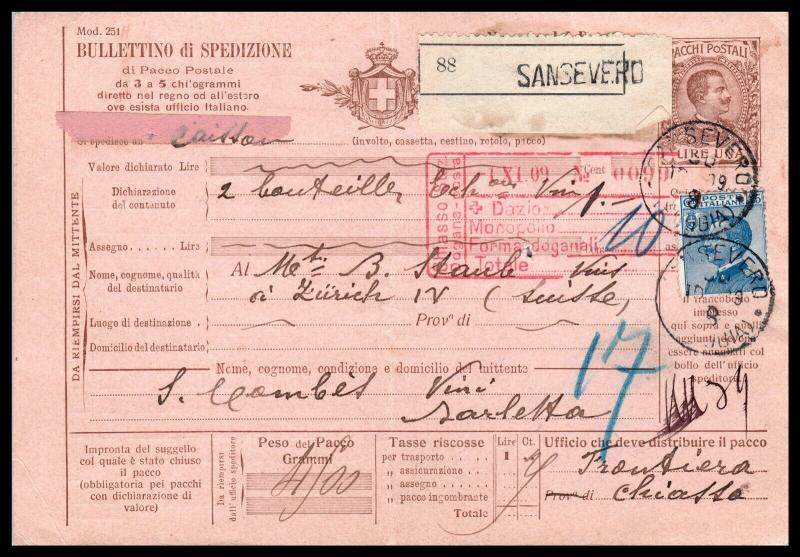 Mod. 251
BULLETTINO di SPEDIZIONE
di Pacco Postale
da 3 a 5 chilogrammi
diretto nel regno od all'estero
ove esista ufficio Italiano.
88 SANSEVERO
PACCHI POSTALI
LIRE UNA
Si spedisce un caisson
(involto, cassetta, cestino, rotolo, pacco)
Valore dichiarato Lire Cent
1 XI. 09 № 0099
Dichiarazione del contenuto
2 bouteilles Echons Vins
Dazio
Monopolio
Forma doganali
Totale
10
POSTE ITALIANE
SEVERO
Assegno Lire
DA RIEMPIRSI DAL MITTENTE
Nome, cognome, qualità del destinatario
Al B. Staub Vins
à Zürich IV (Suisse)
Luogo di destinazione
Provª di
Domicilio del destinatario
Il francobollo
impresso
qui sopra e quelli
aggiunti
essere annullati col
bollo dell'ufficio
speditore.
Nome, cognome, condizione e domicilio del mittente
S. Combès Vini
Barletta
17
Impronta del suggello
col quale è stato chiuso
il pacco
(obbligatoria pei pacchi
con dichiarazione di
valore)
Da riempirsi
dall'ufficio speditore
Peso del Pacco
Grammi
4/00
Tasse riscosse Lire Ct.
per trasporto 1
„ assicurazione
„ assegno
„ pacco ingombrante
Totale
Ufficio che deve distribuire il pacco
Frontiera
Provª di Chiasso